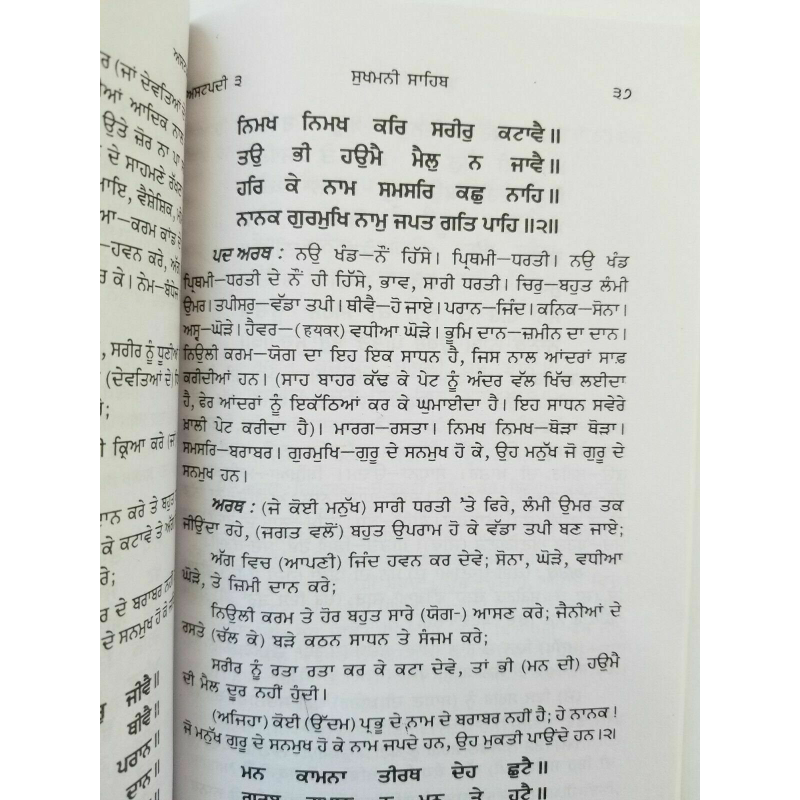 ਰ (ਜਾਂ ਦੇਵਤਿਆਂ
ਆਂ ਆਦਿਕ ਨਾਲ
ਉਤੇ ਜ਼ੋਰ ਨਾ ਪਾ
ਦੇ ਸਾਹਮਣੇ ਰੱਖਣ
ਮਾਇ, ਵੈਸ਼ੇਸ਼ਿਕ,
ਆ—ਕਰਮ ਕਾਂਡ ਦੇ
—ਹਵਨ ਕਰੇ, ਅੱਗ
ਰ ਕੇ। ਨੇਮ—ਬੰਧੇਜ
, ਸਰੀਰ ਨੂੰ ਧੂਣੀਆਂ
(ਦੇਵਤਿਆਂ ਦੇ)
ਂ;
ੀ ਕ੍ਰਿਆ ਕਰੇ (ਜਾਂ
ਦਾਨ ਕਰੇ ਤੇ ਬਹੁਤ
ਕੇ ਕਟਾਵੇ ਤੇ ਅੱਗ
ਕਰੇ;
ਰ ਦੇ ਬਰਾਬਰ ਨਹੀਂ
ਦੇ ਸਨਮੁਖ ਹੋ ਕੇ
ਜੀਵੈ॥
ਥੀਵੈ॥
ਪਰਾਨ॥
ਦਾਨ॥
ਅਸਟਪਦੀ ੩ ਸੁਖਮਨੀ ਸਾਹਿਬ ੩੭
ਨਿਮਖ ਨਿਮਖ ਕਰਿ ਸਰੀਰੁ ਕਟਾਵੈ॥
ਤਉ ਭੀ ਹਉਮੈ ਮੈਲੁ ਨ ਜਾਵੈ॥
ਹਰਿ ਕੇ ਨਾਮ ਸਮਸਰਿ ਕਛੁ ਨਾਹਿ॥
ਨਾਨਕ ਗੁਰਮੁਖਿ ਨਾਮੁ ਜਪਤ ਗਤਿ ਪਾਹਿ॥੨॥
ਪਦ ਅਰਥ : ਨਉ ਖੰਡ—ਨੌਂ ਹਿੱਸੇ। ਪ੍ਰਿਥਮੀ—ਧਰਤੀ। ਨਉ ਖੰਡ
ਪ੍ਰਿਥਮੀ—ਧਰਤੀ ਦੇ ਨੌਂ ਹੀ ਹਿੱਸੇ, ਭਾਵ, ਸਾਰੀ ਧਰਤੀ। ਚਿਰੁ—ਬਹੁਤ ਲੰਮੀ
ਉਮਰ। ਤਪੀਸਰੁ—ਵੱਡਾ ਤਪੀ। ਥੀਵੈ—ਹੋ ਜਾਏ। ਪਰਾਨ—ਜਿੰਦ। ਕਨਿਕ—ਸੋਨਾ।
ਅਸ੍ਵ—ਘੋੜੇ। ਹੈਵਰ—(हयवर) ਵਧੀਆ ਘੋੜੇ। ਭੂਮਿ ਦਾਨ—ਜ਼ਮੀਨ ਦਾ ਦਾਨ।
ਨਿਉਲੀ ਕਰਮ—ਯੋਗ ਦਾ ਇਹ ਇਕ ਸਾਧਨ ਹੈ, ਜਿਸ ਨਾਲ ਆਂਦਰਾਂ ਸਾਫ਼
ਕਰੀਦੀਆਂ ਹਨ। (ਸਾਹ ਬਾਹਰ ਕੱਢ ਕੇ ਪੇਟ ਨੂੰ ਅੰਦਰ ਵੱਲ ਖਿੱਚ ਲਈਦਾ
ਹੈ, ਫੇਰ ਆਂਦਰਾਂ ਨੂੰ ਇਕੱਠਿਆਂ ਕਰ ਕੇ ਘੁਮਾਈਦਾ ਹੈ। ਇਹ ਸਾਧਨ ਸਵੇਰੇ
ਖ਼ਾਲੀ ਪੇਟ ਕਰੀਦਾ ਹੈ)। ਮਾਰਗ—ਰਸਤਾ। ਨਿਮਖ ਨਿਮਖ—ਥੋੜਾ ਥੋੜਾ।
ਸਮਸਰਿ—ਬਰਾਬਰ। ਗੁਰਮੁਖਿ—ਗੁਰੂ ਦੇ ਸਨਮੁਖ ਹੋ ਕੇ, ਉਹ ਮਨੁੱਖ ਜੋ ਗੁਰੂ ਦੇ
ਸਨਮੁਖ ਹਨ।
ਅਰਥ : (ਜੇ ਕੋਈ ਮਨੁੱਖ) ਸਾਰੀ ਧਰਤੀ 'ਤੇ ਫਿਰੇ, ਲੰਮੀ ਉਮਰ ਤਕ
ਜੀਊਂਦਾ ਰਹੇ, (ਜਗਤ ਵਲੋਂ) ਬਹੁਤ ਉਪਰਾਮ ਹੋ ਕੇ ਵੱਡਾ ਤਪੀ ਬਣ ਜਾਏ;
ਅੱਗ ਵਿਚ (ਆਪਣੀ) ਜਿੰਦ ਹਵਨ ਕਰ ਦੇਵੇ; ਸੋਨਾ, ਘੋੜੇ, ਵਧੀਆ
ਘੋੜੇ, ਤੇ ਜ਼ਿਮੀ ਦਾਨ ਕਰੇ;
ਨਿਉਲੀ ਕਰਮ ਤੇ ਹੋਰ ਬਹੁਤ ਸਾਰੇ (ਯੋਗ-) ਆਸਣ ਕਰੇ; ਜੈਨੀਆਂ ਦੇ
ਰਸਤੇ (ਚੱਲ ਕੇ) ਬੜੇ ਕਠਨ ਸਾਧਨ ਤੇ ਸੰਜਮ ਕਰੇ;
ਸਰੀਰ ਨੂੰ ਰਤਾ ਰਤਾ ਕਰ ਕੇ ਕਟਾ ਦੇਵੇ, ਤਾਂ ਭੀ (ਮਨ ਦੀ) ਹਉਮੈ
ਦੀ ਮੈਲ ਦੂਰ ਨਹੀਂ ਹੁੰਦੀ।
(ਅਜਿਹਾ) ਕੋਈ (ਉੱਦਮ) ਪ੍ਰਭੂ ਦੇ ਨਾਮ ਦੇ ਬਰਾਬਰ ਨਹੀਂ ਹੈ; ਹੇ ਨਾਨਕ!
ਜੋ ਮਨੁੱਖ ਗੁਰੂ ਦੇ ਸਨਮੁਖ ਹੋ ਕੇ ਨਾਮ ਜਪਦੇ ਹਨ, ਉਹ ਮੁਕਤੀ ਪਾਉਂਦੇ ਹਨ।੨।
ਮਨ ਕਾਮਨਾ ਤੀਰਥ ਦੇਹ ਛੁਟੈ॥
ਗਰਬੁ ਗੁਮਾਨੁ ਨ ਮਨ ਤੇ ਹੁਟੈ॥